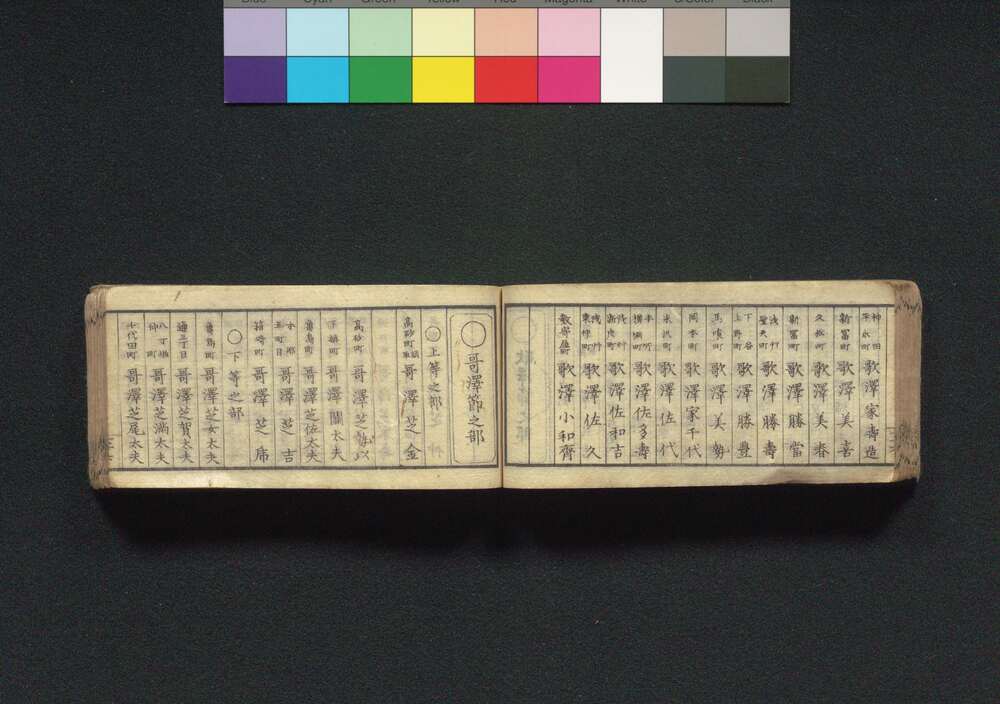 Blue Cyan Green Yellow Red Magenta White 3/Color Black
神田 平永町 歌澤家壽造
新富町 歌澤美喜
久松町 歌澤美春
新富町 歌澤勝當
浅草 聖天町 歌澤勝壽
下谷 上野町 歌澤勝豊
馬喰町 歌澤美勢
岡本町 歌澤家千代
米沢町 歌澤佐代
本所 横網町 歌澤佐多壽
浅草 歌澤佐和吉
浅草 東仲町 歌澤佐久
数寄屋町 歌澤小和齊
○哥澤節之部
○上等之部
高砂町 哥澤芝金
高砂町 哥澤芝勢以
哥澤蘭太夫
亀島町 哥澤芝佐太夫
本郷 三町目 哥澤芝吉
箱崎町 哥澤芝席
○下等之部
亀島町 哥澤芝女太夫
通三丁目 哥澤芝賀太夫
八丁堀 仲町 哥澤芝満太夫
千代田町 哥澤芝尾太夫